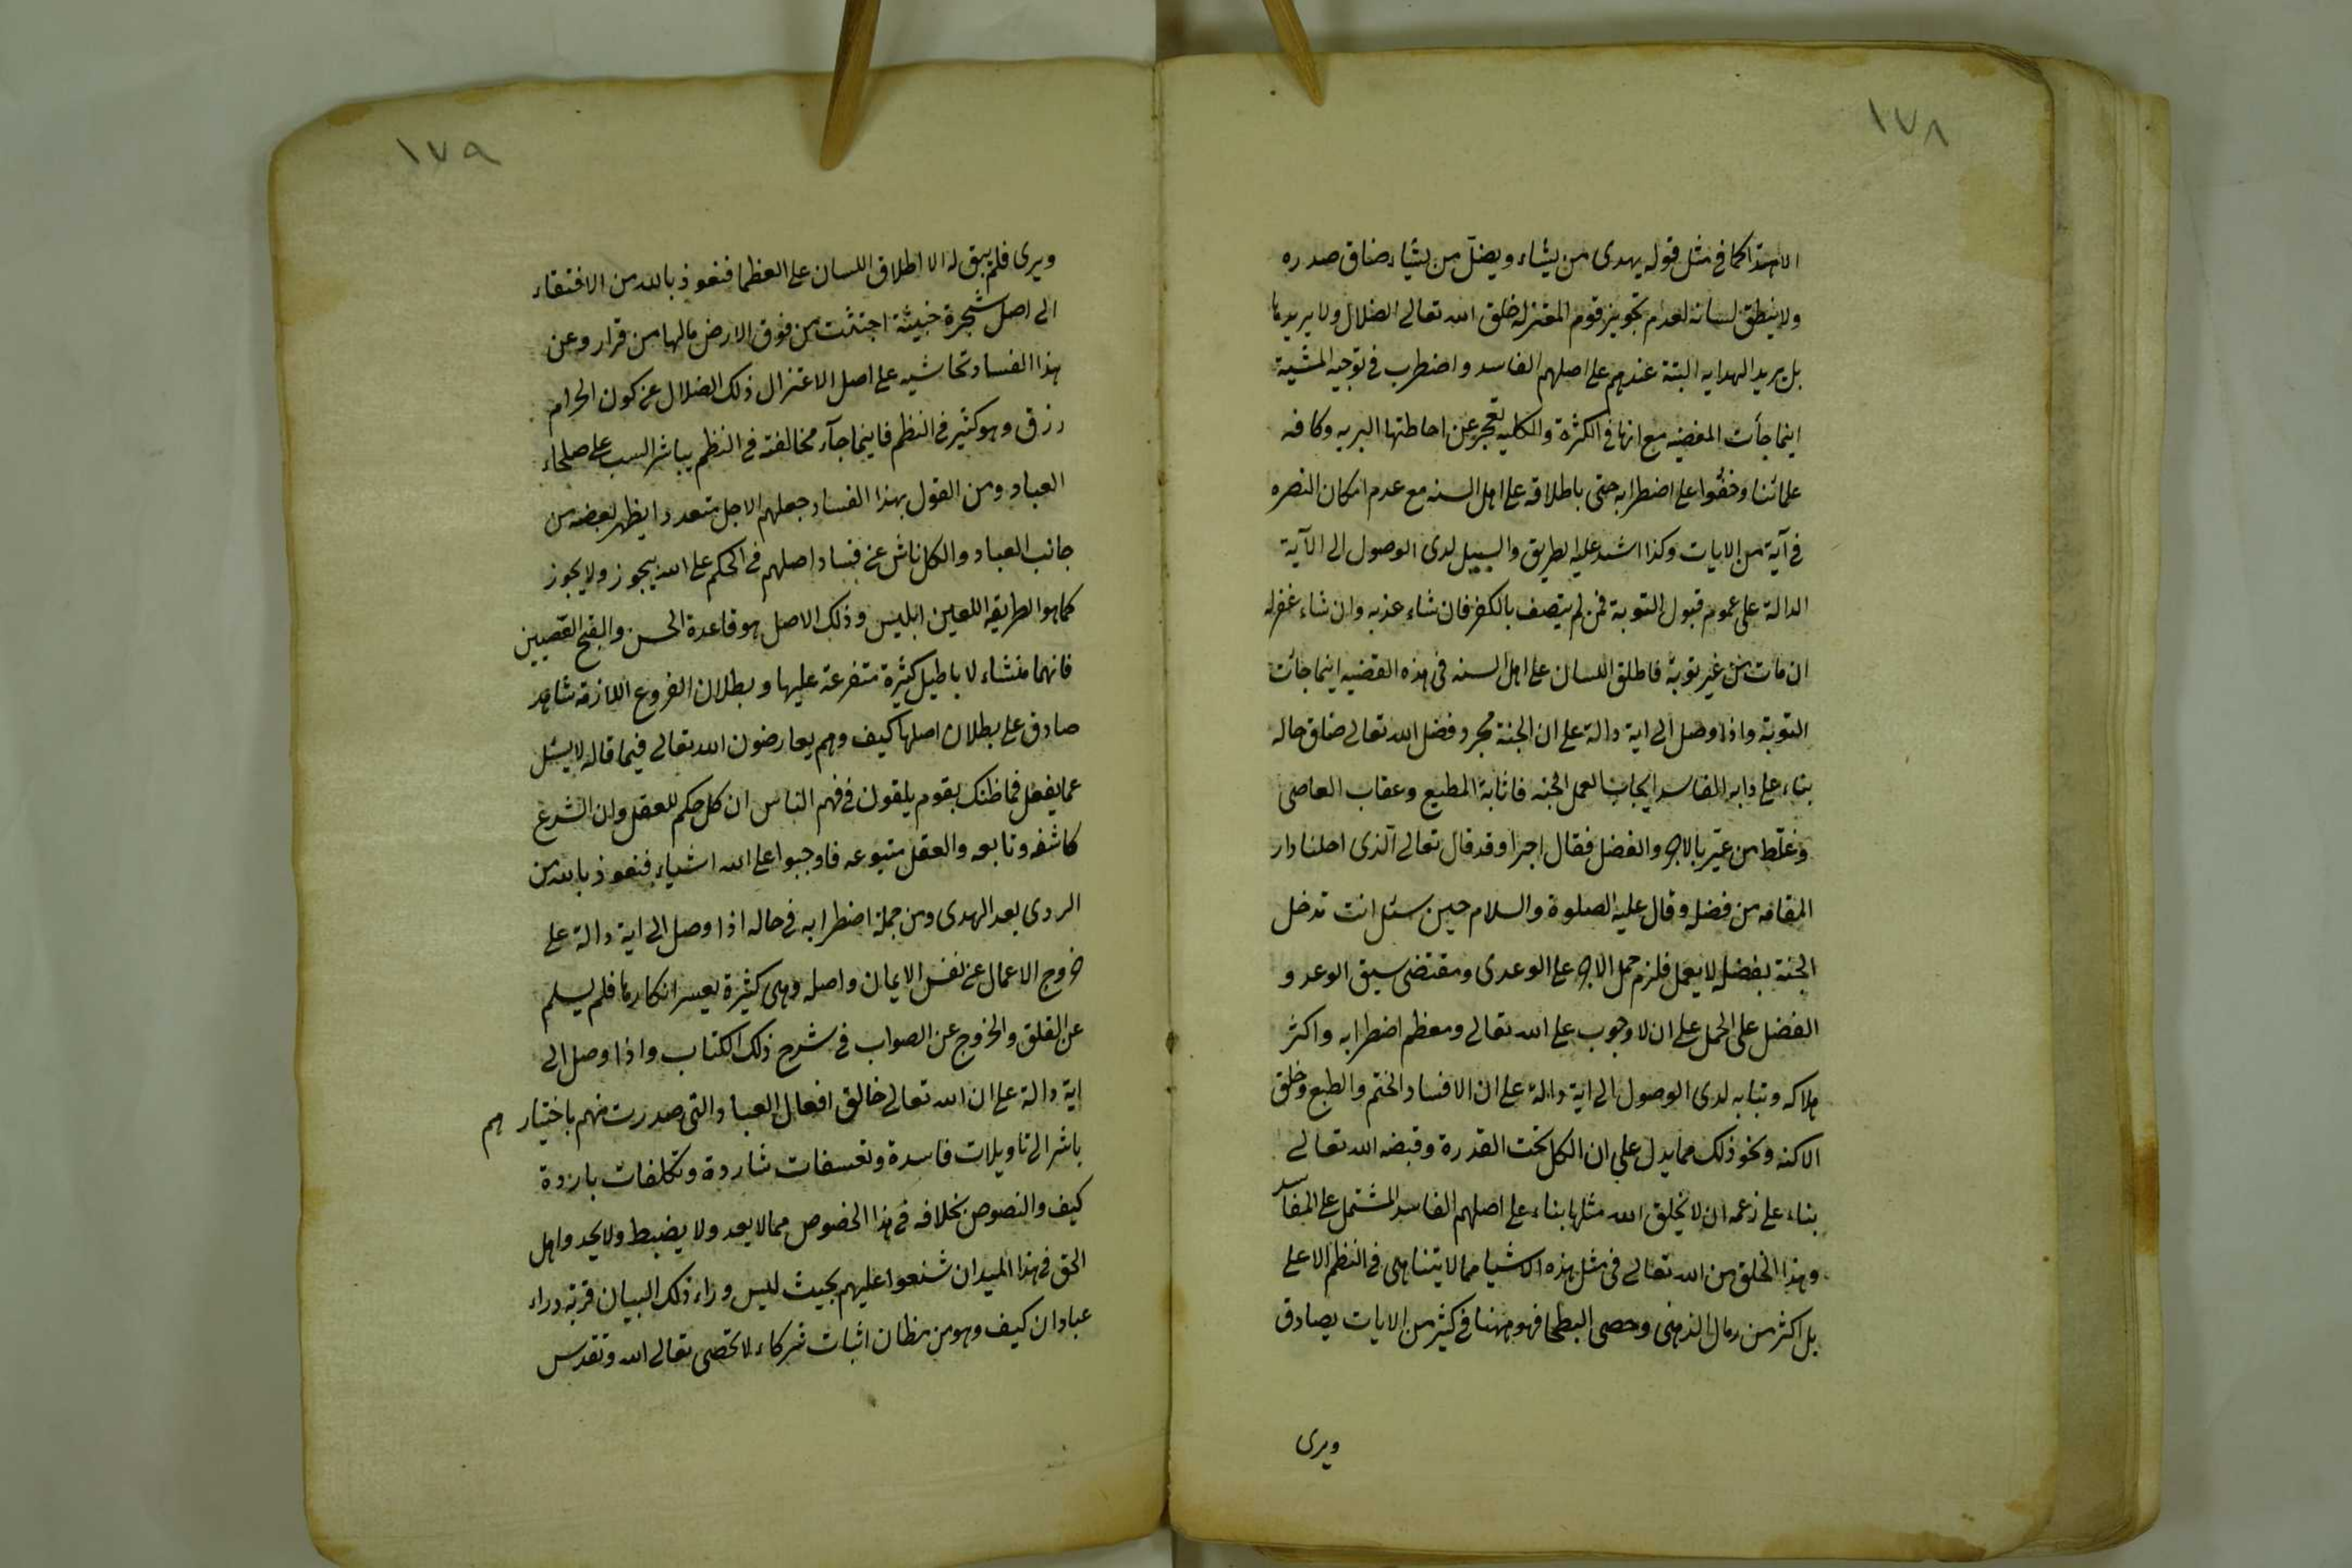 ١٧٨
الاهتدا كما في مثل قوله يهدى من يشاء ويضل من يشاء ضاق صدره
ولا ينطق لسانه لعدم تجويز قوم المعتزله خلق الله تعالى الضلال ولا يريدها
بل يريد الهدايه البتة عندهم على اصلهم الفاسد واضطرب في توجيه المشية
اينما جأت المفضيه مع انها في الكثرة والكليه تعجز عن احاطتها البريه وكافه
علمائنا وخفوا على اضطرابه حتى باطلاقه على اهل السنه مع عدم امكان النصره
في آية من الايات وكذا اشد عليه الطريق والسبيل لدى الوصول الى الآية
الدالة على عموم قبول التوبة فمن لم يتصف بالكفر فان شاء عذبه وان شاء غفر له
ان مات من غير توبة فاطلق اللسان على اهل السنه في هذه القضيه اينما جائت
التوبة واذا وصل الى اية دالة على ان الجنة مجرد فضل الله تعالى ضاق حاله
بناء على دابه الفاسد ايجاب العمل الجنه فاثابة المطيع وعقاب العاصى
وغلط من عبر بالاجر والفضل فقال اجرا وقد قال تعالى الذى احلنا دار
المقامه من فضله وقال عليه الصلوة والسلام حين سئل انت تدخل
الجنة بفضله لا بعمل فلزم حمل الاجر على الوعدى ومقتضى سبق الوعد و
الفضل على الحمل على ان لا وجوب على الله تعالى ومعظم اضطرابه واكثر
هلاكه وتبابه لدى الوصول الى اية دالة على ان الافساد الختم والطبع وخلق
الاكنه ونحو ذلك مما يدل على ان الكل تحت القدرة وقبضه الله تعالى
بناء على زعمه ان لا يخلق الله مثلها بناء على اصلهم الفاسد المشتمل على المفاسد
وهذا الخلق من الله تعالى في مثل هذه الاشيا مما لا يتناهى في النظم الاعلى
بل اكثر من رمال الدهنى وحصى البطحا فهو مهنا في كثير من الايات يصادق
ويرى
١٧٩
ويرى فلم يبق له الا اطلاق اللسان على العظما فنعوذ بالله من الافتقاء
الى اصل شجرة خبيثة اجتثت من فوق الارض مالها من قرار وعن
هذا الفساد تحاشيه على اصل الاعتزال ذلك الضلال عن كون الحرام
رزق وهو كثير في النظم فاينما جآء مخالفته في النظم يباشر السب على صلحاء
العباد ومن القول بهذا الفساد جعلهم الاجل متعددا يظهر بعضه من
جانب العباد والكل ناش عن فساد اصلهم في الحكم على الله بيجوز ولا يجوز
كما هو الطريقه اللعين ابليس وذلك الاصل هو قاعدة الحسن والقبح القصيين
فانهما منشاء لاباطيل كثيرة متفرعة عليها وبطلان الفروع اللازمة شاهد
صادق على بطلان اصلها كيف وهم يعارضون الله تعالى فيما قاله لا يسئل
عما يفعل فما ظنك بقوم يلقون في فهم الناس ان كل حكم للعقل وان الشرع
كاشفه وتابعه والعقل متبوعه فاوجبوا على الله اشياء فنعوذ بالله من
الردى بعد الهدى ومن جملة اضطرابه في حاله اذا وصل الى اية دالة على
خروج الاعمال عن نفس الايمان واصله وهى كثيرة يعسر انكارها فلم يسلم
عن القلق والخروج عن الصواب في شرح ذلك الكتاب واذا وصل الى
اية دالة على ان الله تعالى خالق افعال العباد والتى صدرت منهم باختيارهم
باشر الى تاويلات فاسدة وتعسفات شاردة وتكلفات باردة
كيف والنصوص بخلافه في هذا الخصوص مما لا يعد ولا يضبط ولا يحد واهل
الحق في هذا الميدان شنعوا عليهم بحيث ليس وراء ذلك البيان قرية وراء
عبادان كيف وهو من مظان اثبات شركاء لا تحصى تعالى الله وتقدس